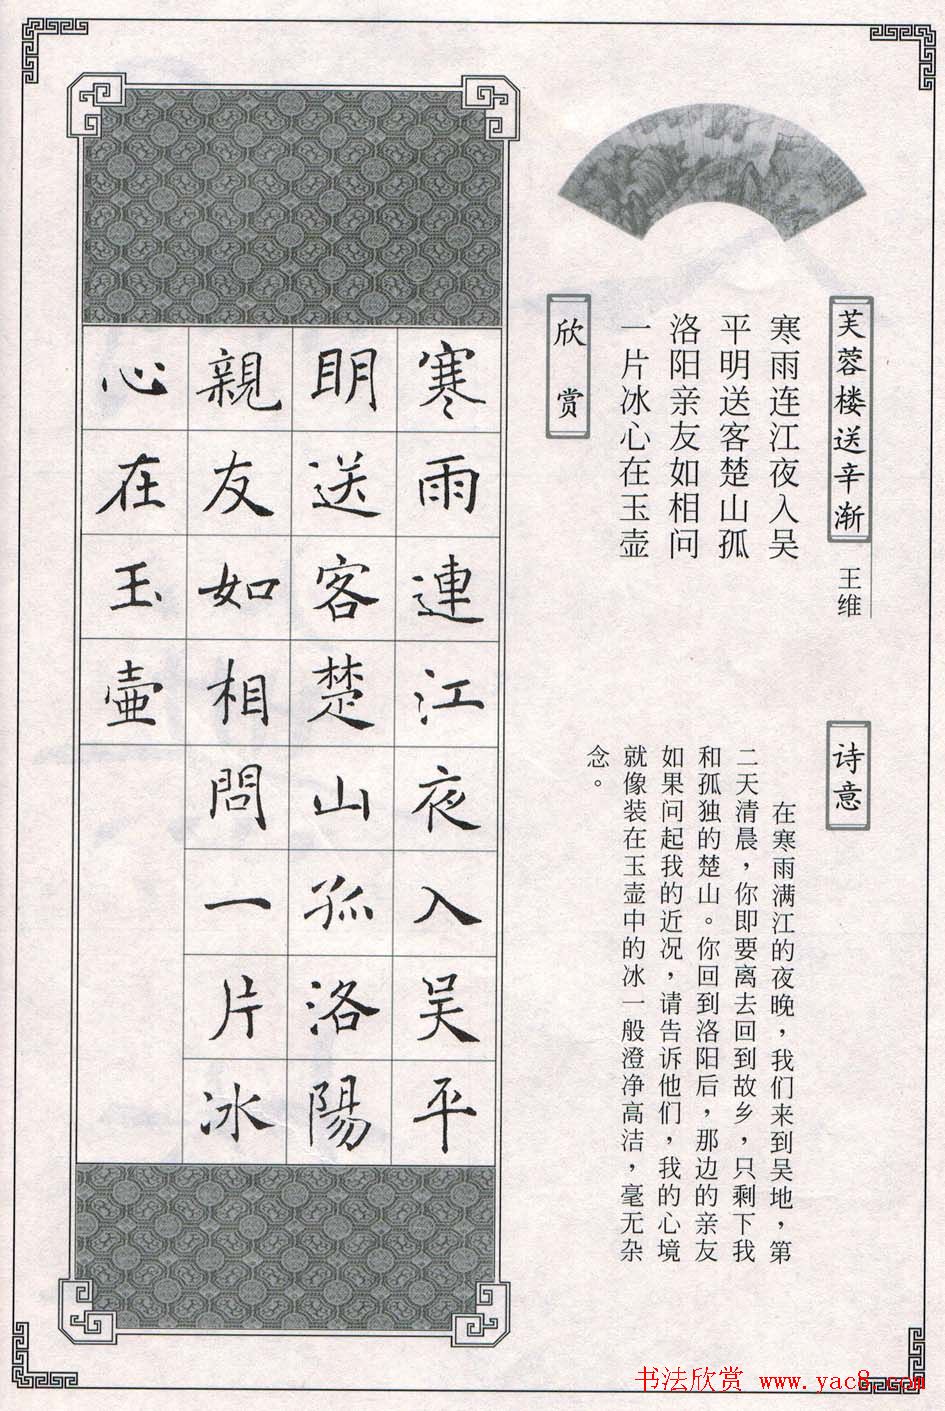 芙蓉楼送辛渐
王维
寒雨连江夜入吴
平明送客楚山孤
洛阳亲友如相问
一片冰心在玉壶
欣赏
诗意
在寒雨满江的夜晚，我们来到吴地，第
二天清晨，你即要离去回到故乡，只剩下我
和孤独的楚山。你回到洛阳后，那边的亲友
如果问起我的近况，请告诉他们，我的心境
就像装在玉壶中的冰一般澄净高洁，毫无杂
念。
寒雨連江夜入吴平
明送客楚山孤洛陽
親友如相問一片冰
心在玉壷
书法欣赏 www.yac8.com